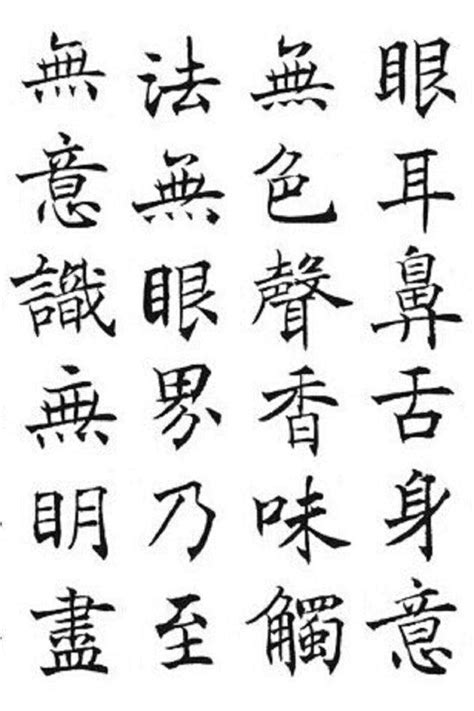 眼耳鼻舌身意
無色聲香味觸
法無眼界乃至
無意識無明盡